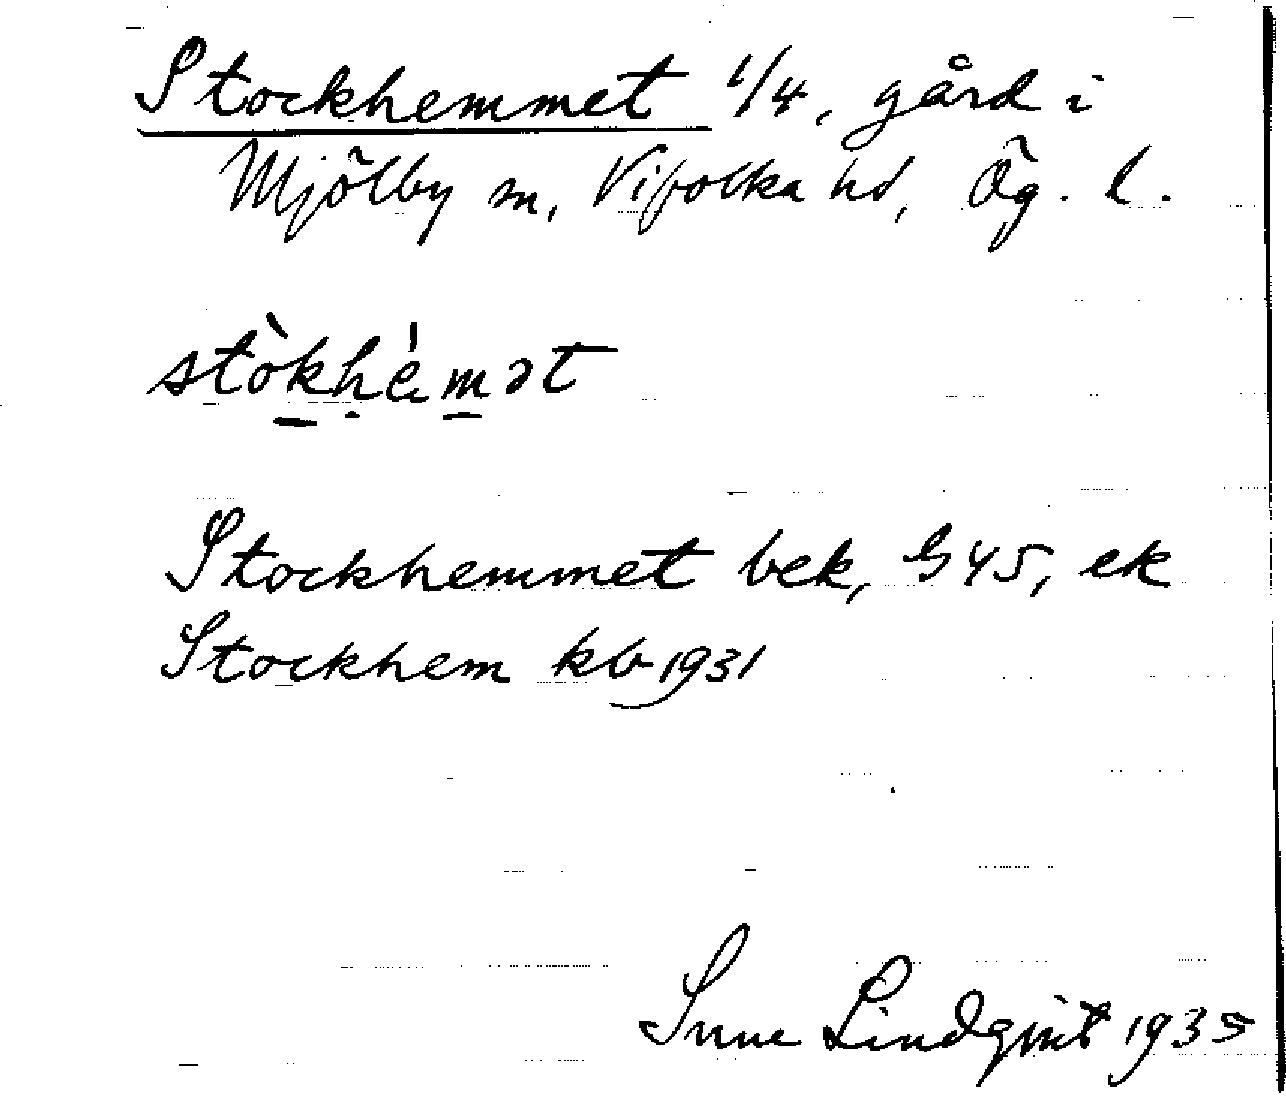 Stockhemmet 1/4, gård i
Mjölby sn, Vifolka hd, Ög. l.
stòkhèmət
Stockhemmet bek, G45, ek
Stockhem kb 1931
Sune Lindqvist 1935